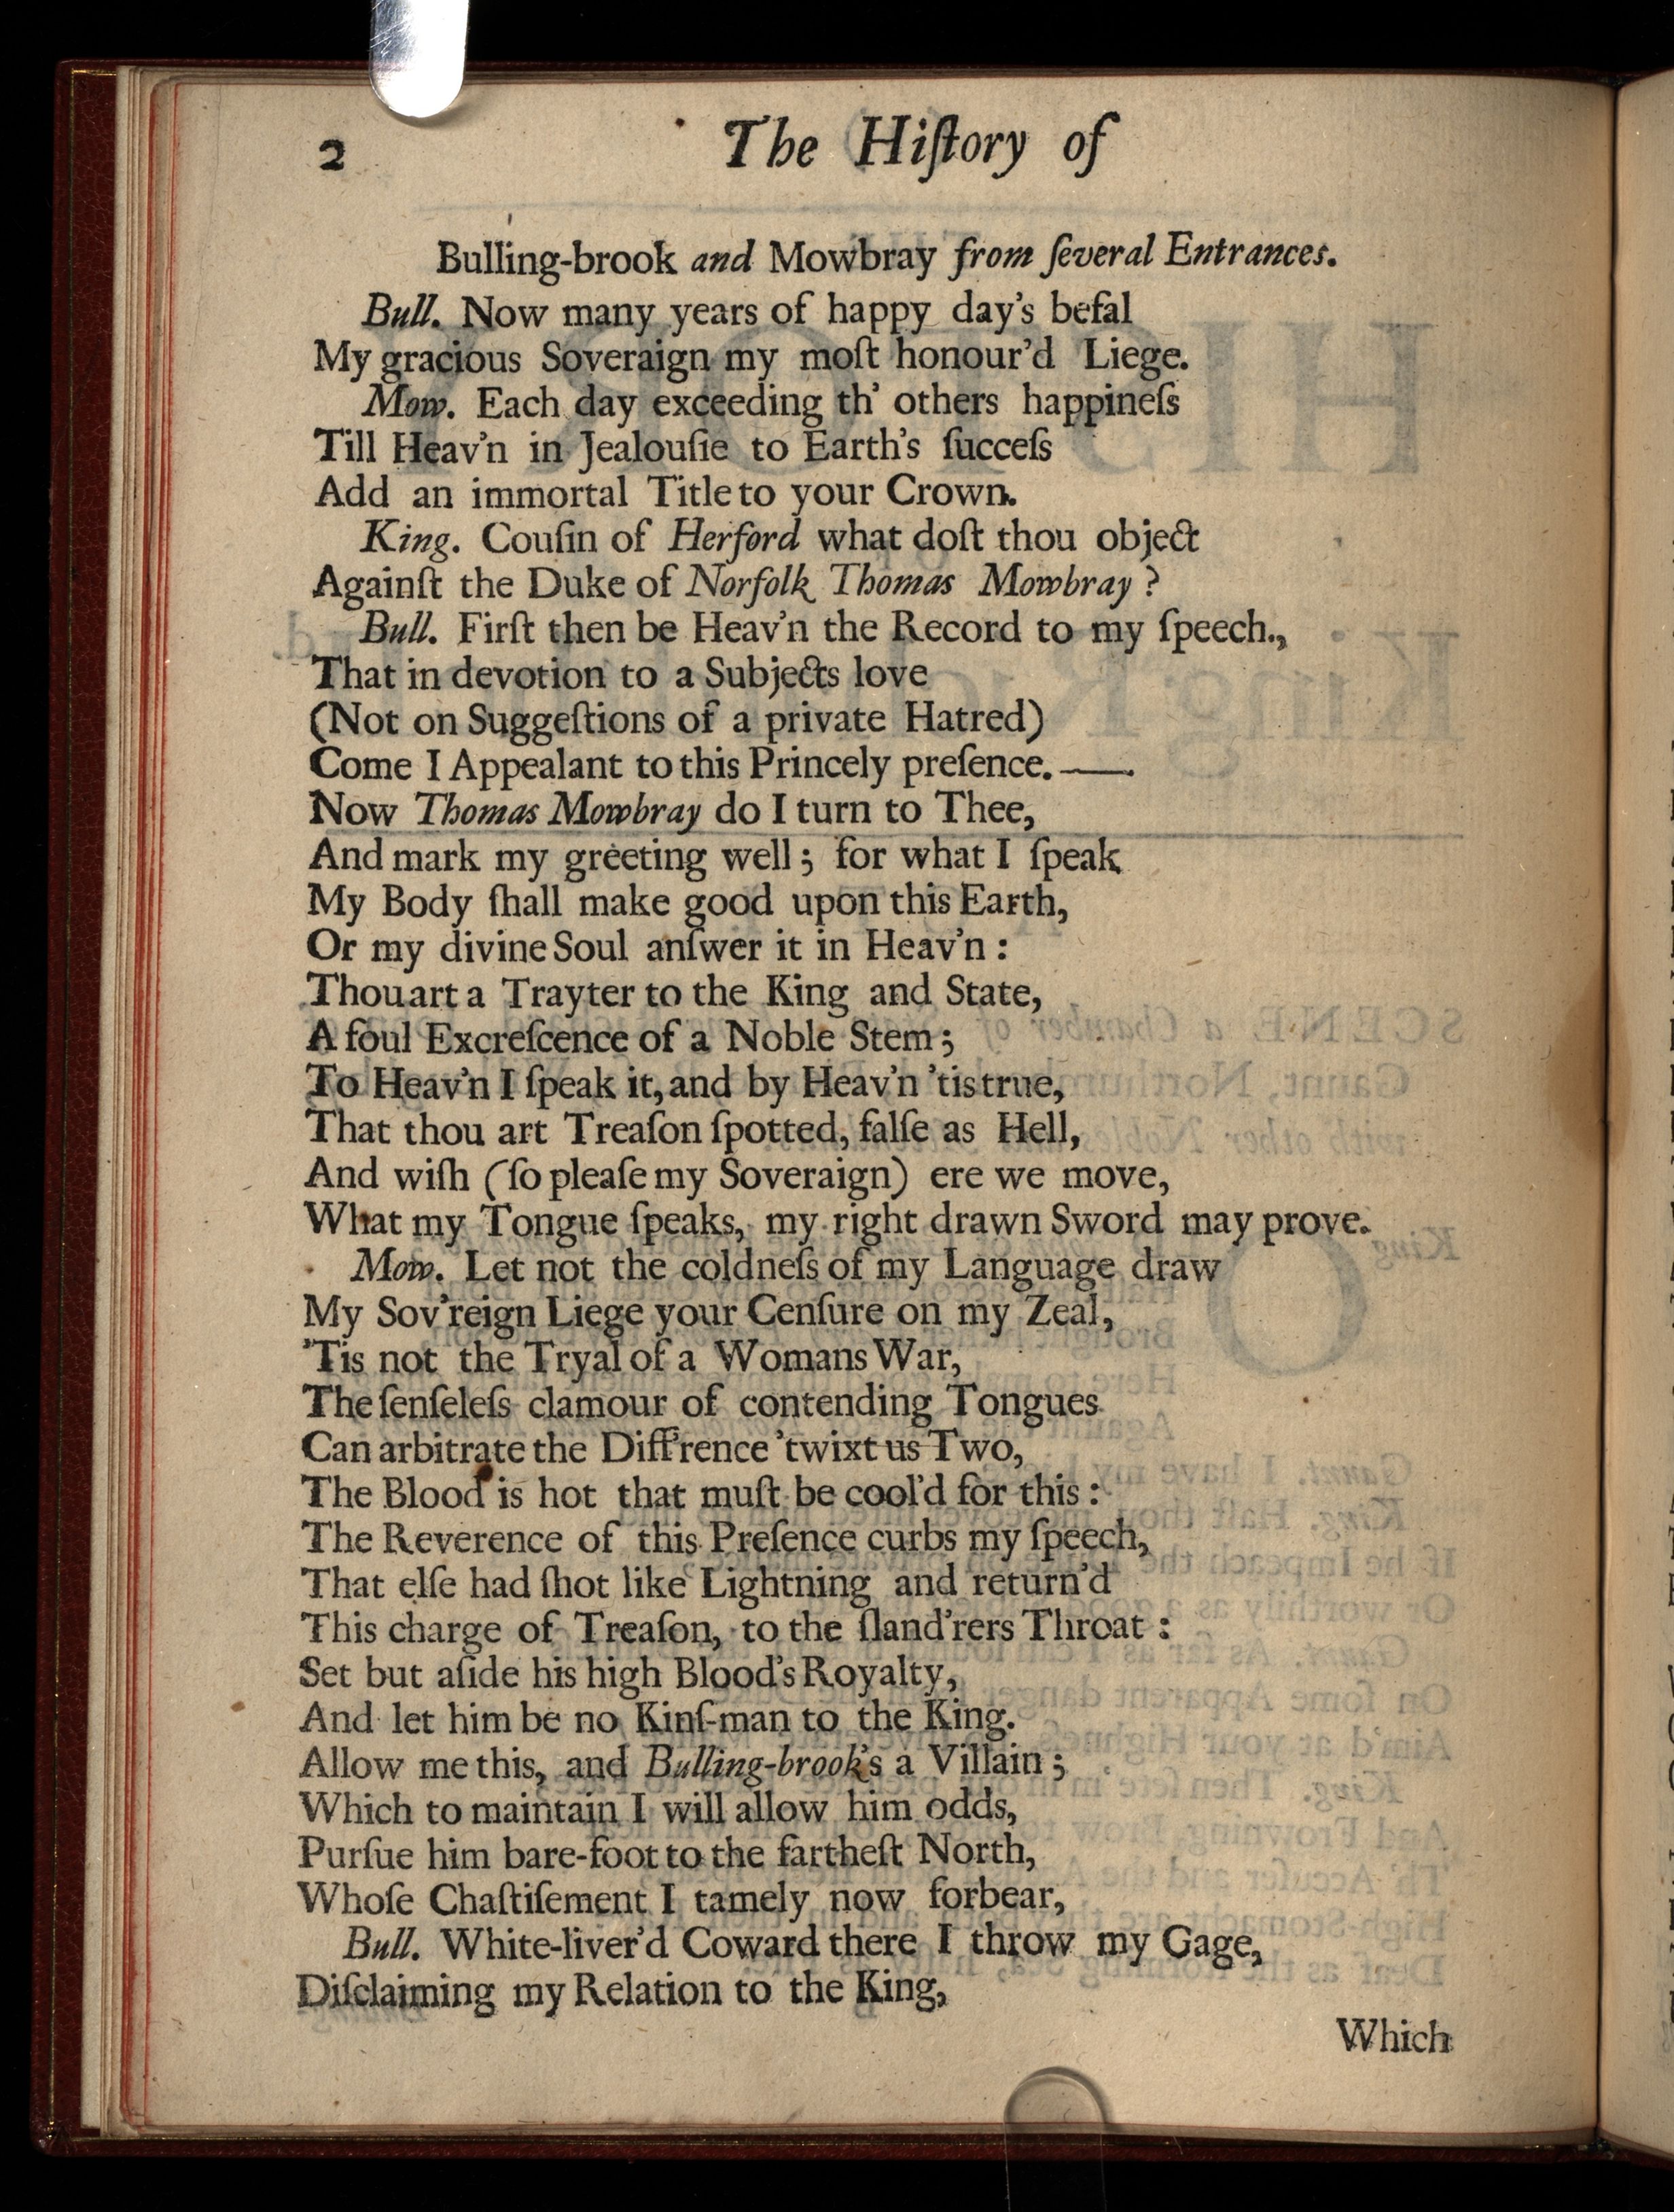 2 The Hiſtory of
Bulling-brook and Mowbray from ſeveral Entrances.
Bull. Now many years of happy day's befal
My gracious Soveraign my moſt honour'd Liege.
Mow. Each day exceeding th' others happineſs
Till Heav'n in Jealouſie to Earth's ſucceſs
Add an immortal Title to your Crown.
King. Couſin of Herford what doſt thou object
Againſt the Duke of Norfolk Thomas Mowbray ?
Bull. Firſt then be Heav'n the Record to my ſpeech.,
That in devotion to a Subjects love
(Not on Suggeſtions of a private Hatred)
Come I Appealant to this Princely preſence. ——.
Now Thomas Mowbray do I turn to Thee,
And mark my greeting well ; for what I ſpeak
My Body ſhall make good upon this Earth,
Or my divine Soul anſwer it in Heav'n :
Thou art a Trayter to the King and State,
A foul Excreſcence of a Noble Stem ;
To Heav'n I ſpeak it, and by Heav'n 'tis true,
That thou art Treaſon ſpotted, falſe as Hell,
And wiſh (ſo pleaſe my Soveraign) ere we move,
What my Tongue ſpeaks, my right drawn Sword may prove.
Mow. Let not the coldneſs of my Language draw
My Sov'reign Liege your Cenſure on my Zeal,
'Tis not the Tryal of a Womans War,
The ſenſeleſs clamour of contending Tongues
Can arbitrate the Diff'rence 'twixt us Two,
The Blood is hot that muſt be cool'd for this :
The Reverence of this Preſence curbs my ſpeech,
That elſe had ſhot like Lightning and return'd
This charge of Treaſon, to the ſland'rers Throat :
Set but aſide his high Blood's Royalty,
And let him be no Kinſ-man to the King.
Allow me this, and Bulling-brook's a Villain ;
Which to maintain I will allow him odds,
Purſue him bare-foot to the fartheſt North,
Whoſe Chaſtiſement I tamely now forbear,
Bull. White-liver'd Coward there I throw my Gage,
Diſclaiming my Relation to the King,
Which